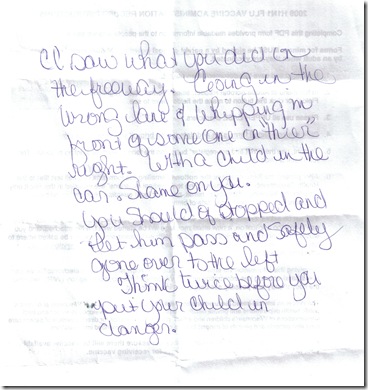 I saw what you did on
the freeway. Going in the
wrong lane & whipping in
front of someone in "thier"
right. With a child in the
car. Shame on you.
You should of stopped and
let him pass and safely
gone over to the left
Think twice before you
put your child in
danger.